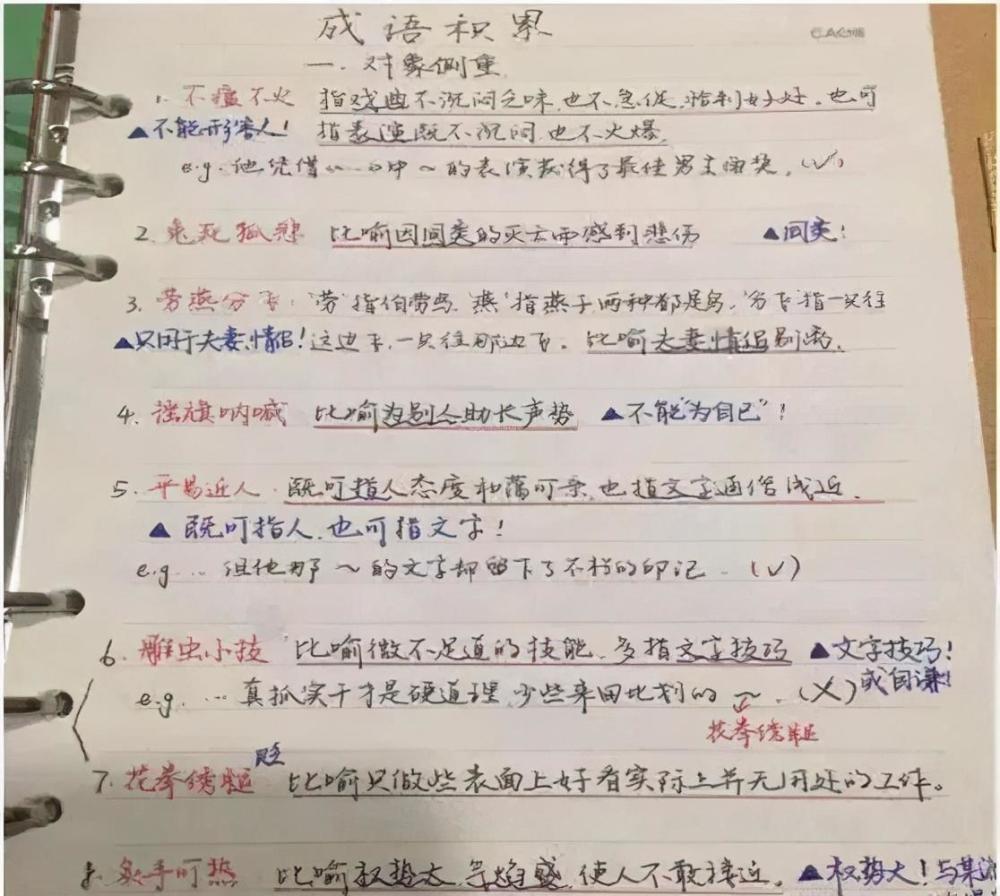 成语积累
一、对象侧重
1. 不瘟不火 指戏曲不沉闷乏味,也不急促,恰到好处。也可
▲不能形容人! 指表演既不沉闷,也不火爆。
e.g. 他凭借……中~的表演获得了最佳男主角奖。(√)
2. 兔死狐悲 比喻因同类的灭亡而感到悲伤 ▲同类!
3. 劳燕分飞:"劳"指伯劳鸟,"燕"指燕子,两种都是鸟,"分飞"指一只往
▲只用于夫妻、情侣!这边飞,一只往那边飞。比喻夫妻、情侣别离。
4. 摇旗呐喊 比喻为别人助长声势 ▲不能"为自己"!
5. 平易近人 既可指人态度和蔼可亲,也指文字通俗浅近。
▲既可指人,也可指文字!
e.g. … 但他那~的文字却留下了不朽的印记。(√)
6. 雕虫小技 比喻微不足道的技能,多指文字技巧 ▲文字技巧!
或自谦!
e.g. … 真抓实干才是硬道理,少些来回比划的~。(×)
花拳绣腿
贬
7. 花拳绣腿 比喻只做些表面上好看实际上并无用处的工作。
8. 炙手可热 比喻权势大,气焰盛,使人不敢接近。▲权势大!与某